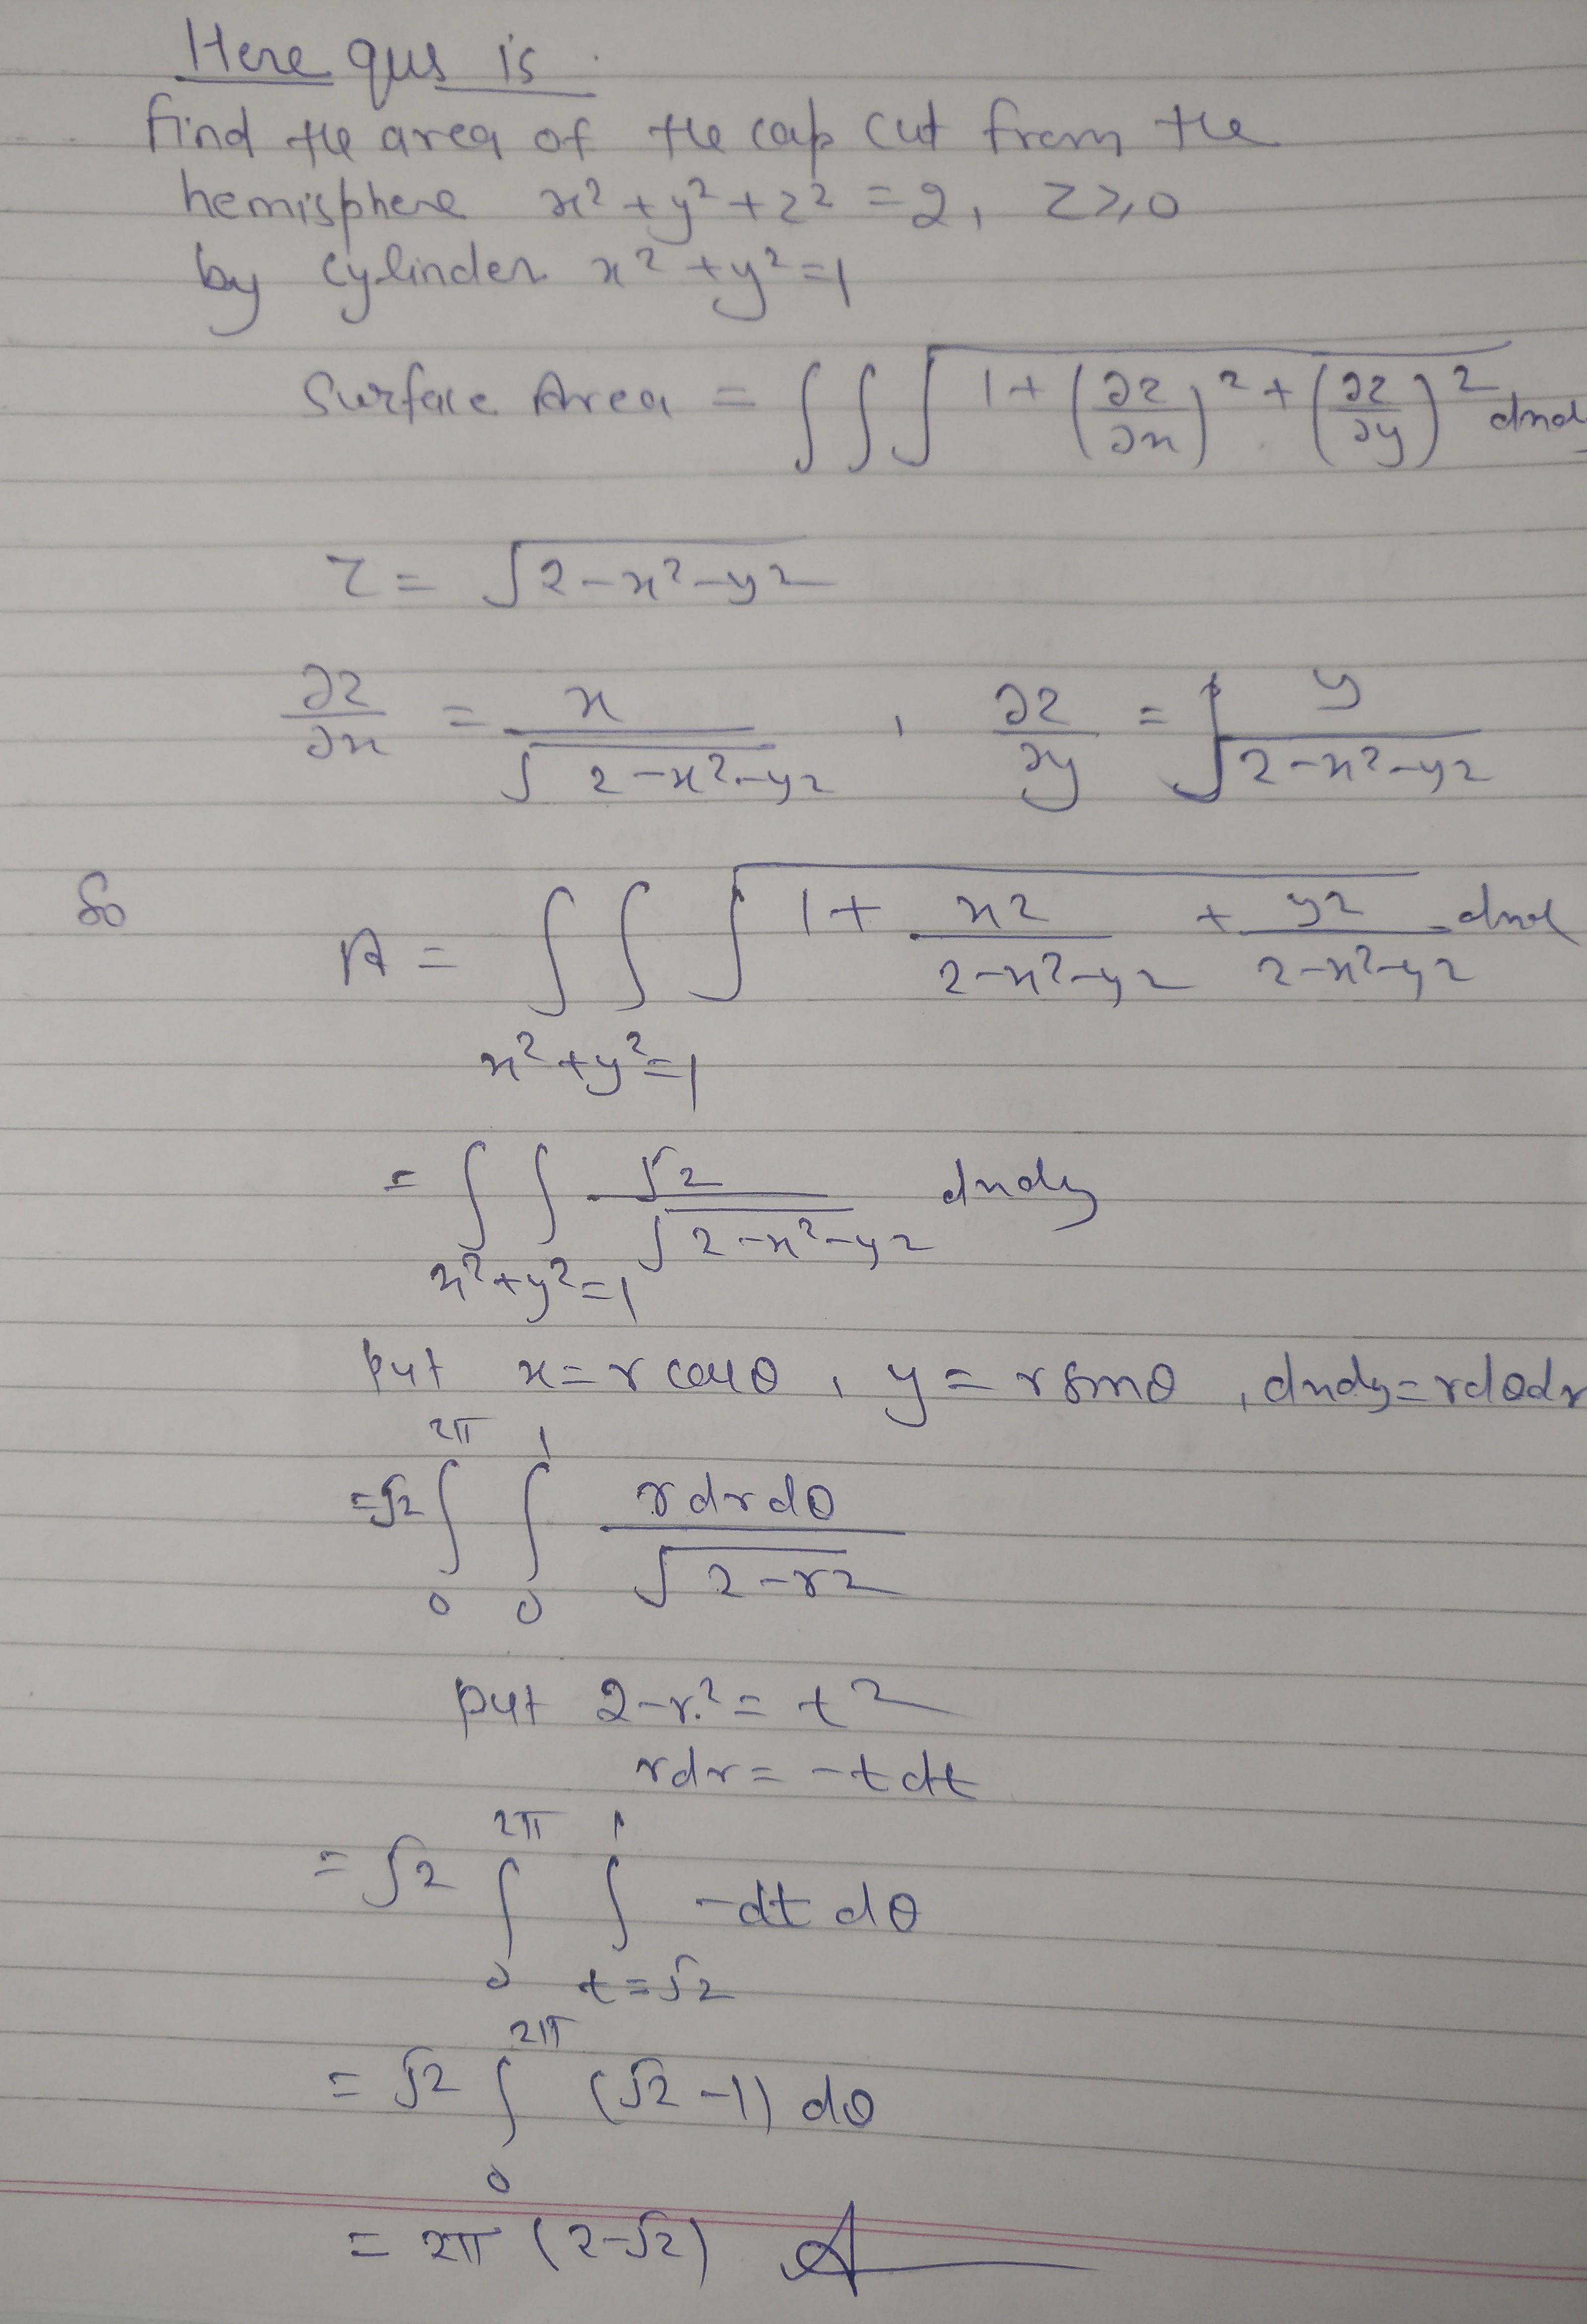 Here qus is
find the area of the cap cut from the
hemisphere x² + y² + z² = 2, z ≥ 0
by cylinder x² + y² = 1
Surface Area = ∫∫ √(1 + (∂z/∂x)² + (∂z/∂y)²) dxd
z = √(2-x²-y²)
∂z/∂x = x/√(2-x²-y²) , ∂z/∂y = y/√(2-x²-y²)
So A = ∫∫ √(1 + x²/(2-x²-y²) + y²/(2-x²-y²)) dxd
x² + y² = 1
= ∫∫ √2/√(2-x²-y²) dxdy
x² + y² = 1
put x = r cosθ , y = r sinθ , dxdy = rdθdr
= √2 ∫₀^2π ∫₀^1 r dr dθ/√(2-r²)
put 2-r² = t²
rdr = -t dt
= √2 ∫₀^2π ∫_{t=√2}^1 -dt dθ
= √2 ∫₀^2π (√2 - 1) dθ
= 2π (2-√2) A